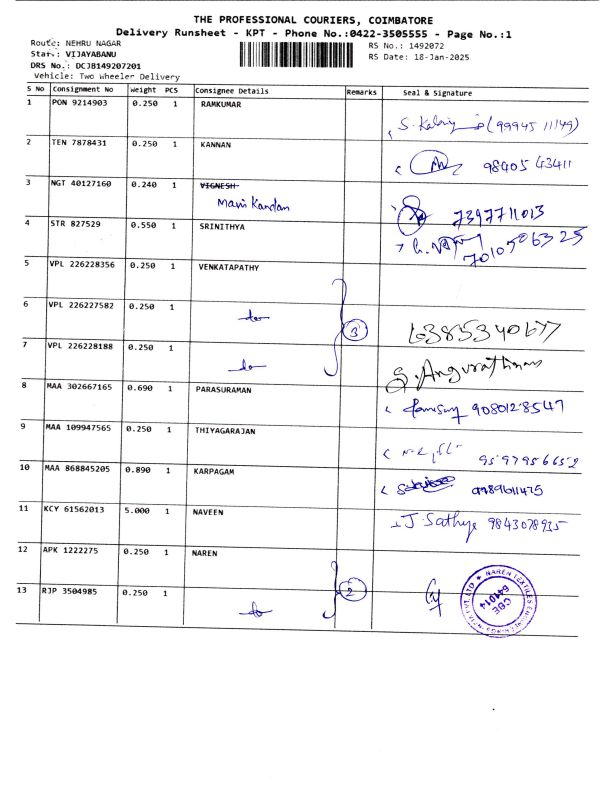 THE PROFESSIONAL COURIERS, COIMBATORE
Delivery Runsheet - KPT - Phone No.:0422-3505555 - Page No.:1
Route: NEHRU NAGAR RS No.: 1492072
Staf.: VIJAYABANU RS Date: 18-Jan-2025
DRS No.: DCJB149207201
Vehicle: Two Wheeler Delivery
S No Consignment No Weight PCS Consignee Details Remarks Seal & Signature
1 PON 9214903 0.250 1 RAMKUMAR
(99945 11149)
2 TEN 7878431 0.250 1 KANNAN
98405 43411
3 NGT 40127160 0.240 1 VIGNESH
Mani Kandan 7397711013
4 STR 827529 0.550 1 SRINITHYA
7010506325
5 VPL 226228356 0.250 1 VENKATAPATHY
6 VPL 226227582 0.250 1
do 3 6385340677
7 VPL 226228188 0.250 1
do S. Angurathinam
8 MAA 302667165 0.690 1 PARASURAMAN
9080128547
9 MAA 109947565 0.250 1 THIYAGARAJAN
9597956652
10 MAA 868845205 0.890 1 KARPAGAM
9789611475
11 KCY 61562013 5.000 1 NAVEEN
J. Sathya 9843078935
12 APK 1222275 0.250 1 NAREN
13 RJP 3504985 0.250 1 2
do
NAREN TEXTILES
CBE
641014